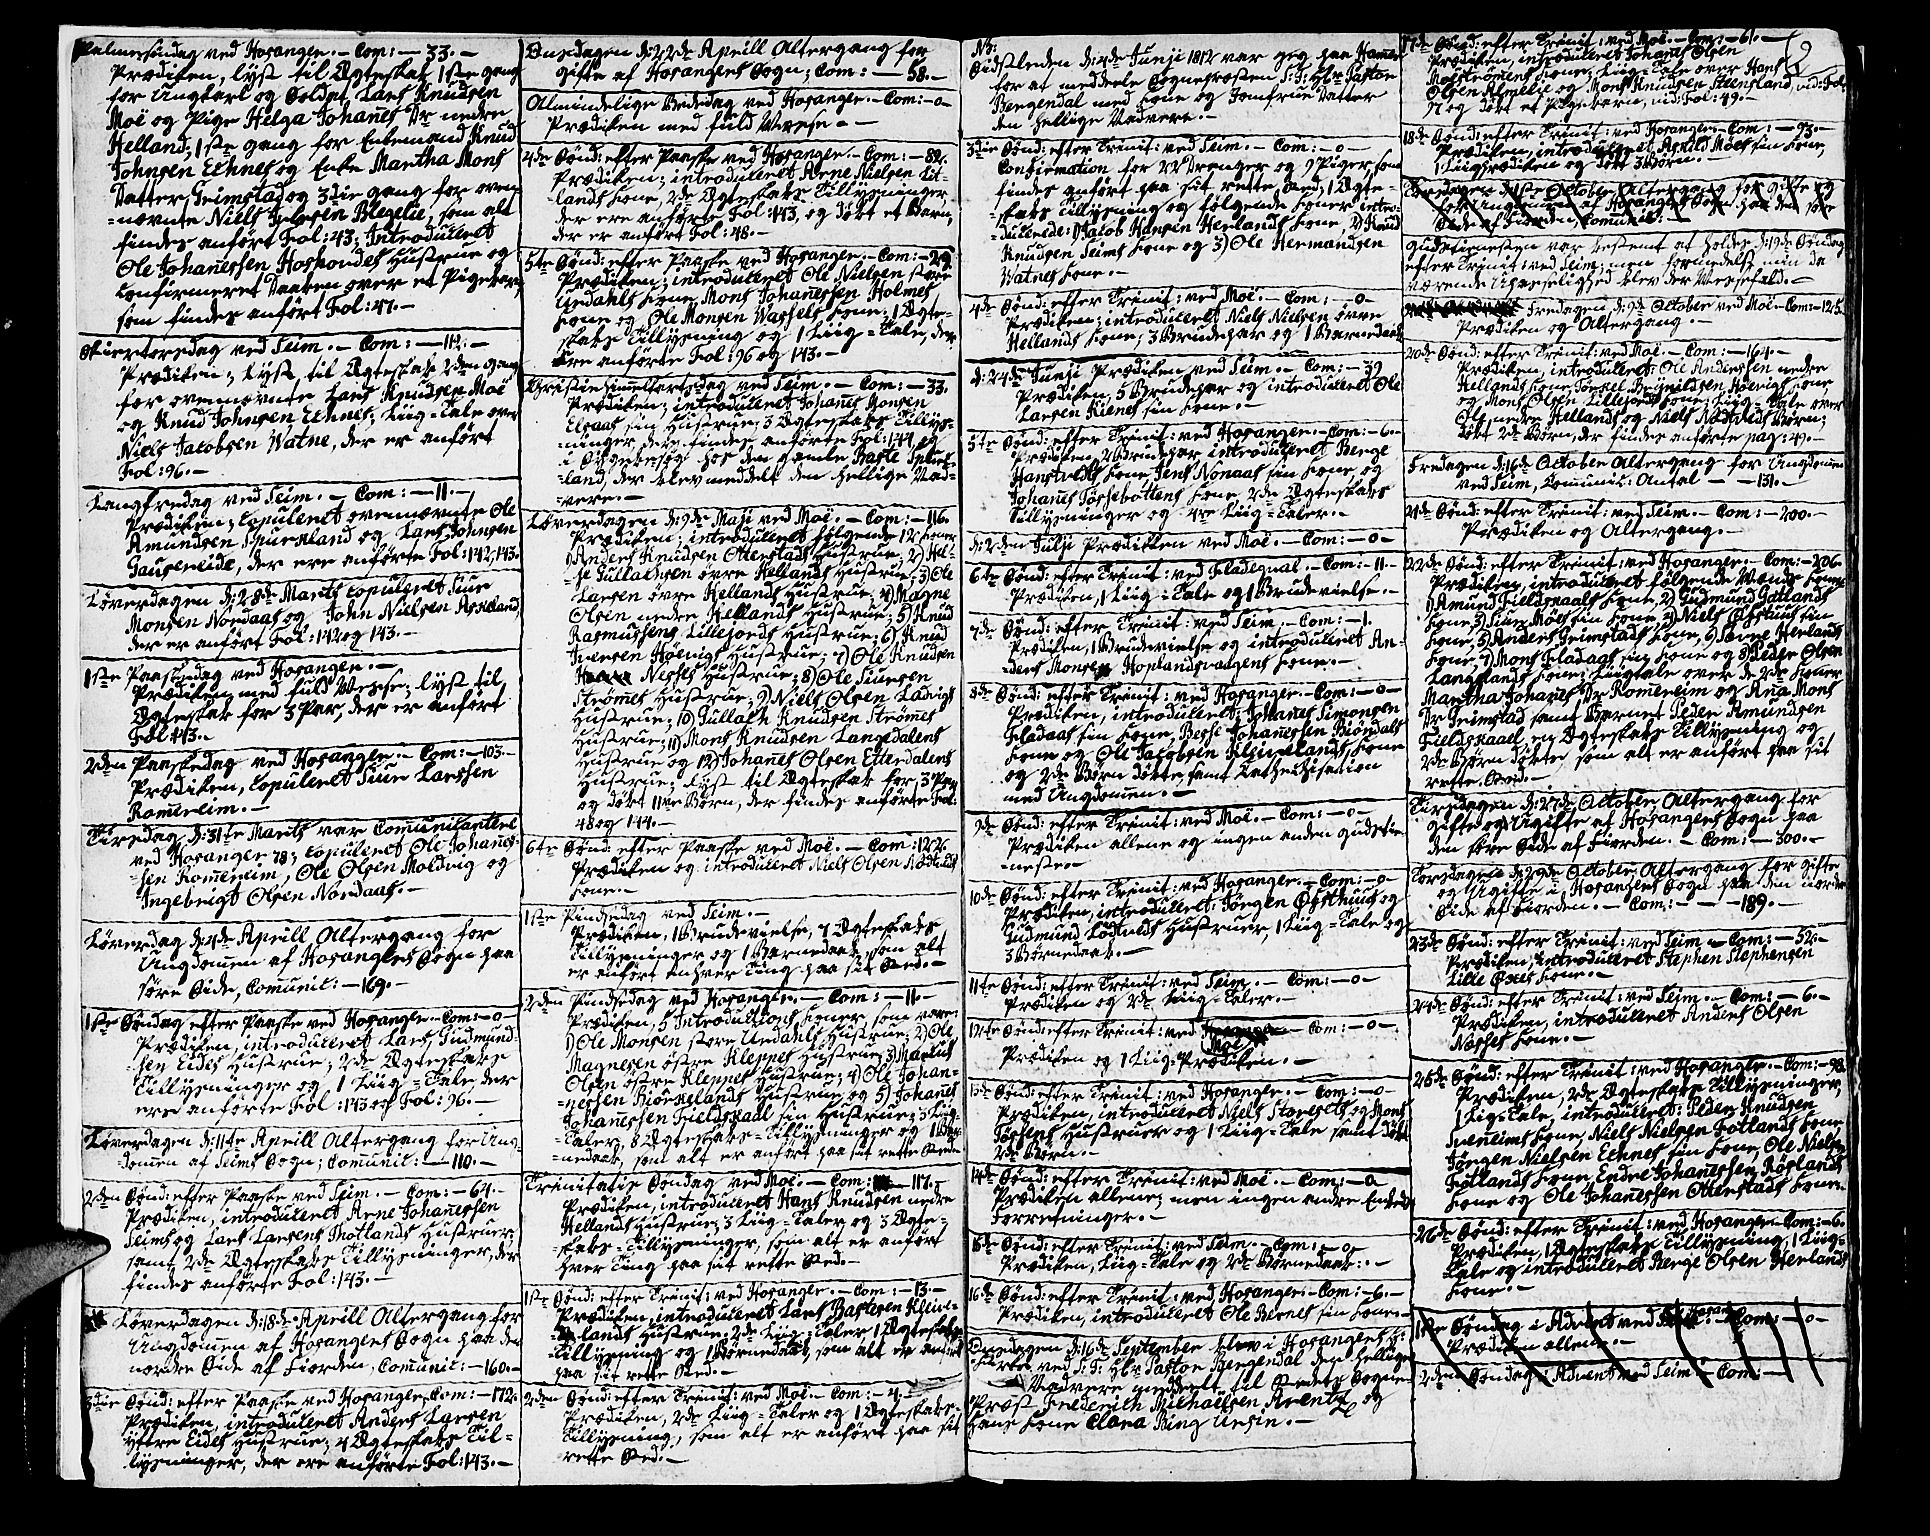 Palmesøndag ved Hosanger. - Com: - 33. -
Prædiken, lyst til Ægteskab 1ste gang
for Ungkarl og Soldat Lars Knudsen
Moë og Pige Helga Johanes Dr nedre
Helland; 1ste gang for Enkemand Knud
Johnsen Echnes og Enke Martha Mons
Datter Seimstad og 3die gang for oven
=nævnte Niels Iversen Blegelie, som alt
findes anfört Fol: 43; Introduceret
Ole Johanessen Hosbondes Hustrue og
Confirmeret Daaben over et Pigebarn,
som findes anfört Fol: 47. -
Skiertorsdag ved Seim. - Com: - 112. -
Prædiken, lyst til Ægteskab 2den gang
for ovennævnte Lars Knudsen Moë
og Knud Johnsen Echnes; Liig=Tale over
Niels Jacobsen Watne, der er anfört
Fol: 96. -
Langfredag ved Seim. - Com: - 11. -
Prædiken; Copuleret ovennævnte Ole
Amundsen Spurkland og Lars Johnsen
Gauseneide, der ere anförte Fol: 142, 143.
Löverdagen d: 28de Marts Copuleret Siur
Monsen Nordaas og John Nielsen Askeland
der er anfört Fol: 142 og 143. -
1ste Paaskedag ved Hosanger. -
Prædiken med fuld Messe; lyst til
Ægteskab for 3 Par, der er anfört
Fol 143. -
2den Paaskedag ved Hosanger. - Com: - 103. -
Prædiken, Copuleret Siur Larssen
Romereim. -
Tirsdag d: 31te Marts var Communicantere
ved Hosanger 78; Copuleret Ole Johanes-
sen Romereim, Ole Olsen Moldvig og
Ingebrigt Olsen Nordaas. -
Löverdag d: 4de Aprill Altergang for
Ungdomen af Hosangers Sogn paa
söre Side, Comunic: - 169. -
1ste Söndag efter Paaske ved Hosanger. Com: - 0 -
Prædiken, introduceret Lars Gudmund-
sen Eides Hustrue; 2de Ægteskabs
Tillysninger og 1 Liig=Tale, der
ere anförte Fol: 143 og Fol: 96. -
Löverdagen d: 11te Aprill Altergang for Ung-
domen af Seims Sogn; Comunic: - 110. -
2den Sönd: efter Paaske ved Seim. - Com: - 64. -
Prædiken, introduceret Arne Johanessen
Seims og Lars Larsens Hotlands Hustruer
samt 2de Ægteskabs Tillysninger, der
findes anförte Fol: 143. -
Löverdagen d: 18de Aprill Altergang for
Ungdomen af Hosangers Sogn paa den
nordre Side af Fiorden, Comunic: - 160. -
3die Sönd: efter Paaske ved Hosanger, Com: - 172.
Prædiken, introduceret Anders Larsen
Yttre Eides Hustrue; 4 Ægteskabs Til-
lysninger, der ere anförte Fol: 143. -
Onsdagen d: 22de Aprill Altergang for
gifte af Hosangers Sogn; Com: - 58. -
Almindelige Bededag ved Hosanger. - Com: - 0 -
Prædiken med fuld Messe. -
4de Sönd: efter Paaske ved Hosanger. - Com: - 82.
Prædiken; introduceret Arne Nielsen Lit-
lands Kone, 2de Ægteskabs Tillysninger,
der ere anförte Fol: 143, og döbt et Barn,
der er anfört Fol: 48. -
5te Sönd: efter Paaske ved Hosanger. - Com: - 29.
Prædiken; introduceret Ole Nielsen store
Urdahls Kone, Mons Johanessen Holmes
Kone og Ole Monsen Wassels Kone; 1 Ægte-
skabs Tillysning og 1 Liig=Tale, der
ere anförte Fol: 96 og 143. -
Christi Himmelfartsdag ved Seim. - Com: - 33.
Prædiken; introduceret Johanes Monsen
Elsaas sin Hustrue; 3 Ægteskabs Tillys-
ninger, der findes anförte Fol: 144, og
i Siugebesög hos den gamle Baste Tvket-
land, der blev meddelt den hellige Nad-
=vere. -
Löverdagen d: 9de Maji ved Moë. - Com: - 116.
Prædiken; introduceret fölgende 12 Koner
1) Anders Knudsen Otterstads Hustrue; 2) Hel-
ge Gullachsen övre Hellands Hustrue; 3) Ole
Larsen övre Hellands Hustrue; 4) Magne
Olsen nedre Hellands Hustrue; 5) Knud
Rasmussens Lillejords Hustrue; 6) Knud
Iversen Hoevigs Hustrue; 7) Ole Knudsen
Nesses Hustrue; 8) Ole Siursen
Strömes Hustrue; 9) Niels Olsen Ladvigs
Hustrue; 10) Gullach Knudsen Strömes
Hustrue; 11) Mons Knudsen Langedalens
Hustrue og 12) Johanes Olsen Etterdalens
Hustrue; lyst til Ægteskab for 3 Par,
og döbt 11ve Börn, der findes anförte Fol:
48 og 144. -
6te Sönd: efter Paaske ved Moë. - Com: 122.
Prædiken og introduceret Niels Olsen Nödtveds
Kone. -
1ste Pindsedag ved Seim. -
Prædiken, 1 Brudevielse, 7 Ægteskabs
Tillysninger og 1 Barnedaab, som alt
er anfört enhver Ting paa sit Sted. -
2den Pindsedag ved Hosanger. - Com: - 11. -
Prædiken, 5 Introductions Koner som vare
1) Ole Monsen store Urdahls Hustrue; 2) Ole
Magnesen östre Kleppes Hustrue; 3) Marcus
Olsen östre Kleppes Hustrue; 4) Ole Johan-
=nessen Biörkelands Hustrue og 5) Johanes
Johanessen Fieldskaal sin Hustrue; 3 Liig-
=Taler, 8 Ægteskabs=Tillysninger og 1 Bar-
=nedaab, som alt er anfört paa sit rette Sted.
Trinitatis Söndag ved Moë. - Com: 117. -
Prædiken, introduceret Hans Knudsen nedre
Hellands Hustrue; 3 Liig=Taler og 3 Ægte-
=skabs=Tillysninger, som alt er anfört
hver Ting paa sit rette Sted. -
1ste Sönd: efter Trinit: ved Hosanger. - Com: - 13. -
Prædiken, introduceret Lars Bastesen Kleive-
=lands Hustrue; 2de Liig=Taler, 1 Ægteskabs-
=Tillysning og 1 Börnedaab, som alt er anfört
paa sit rette Sted. -
2den Sönd: efter Trinit: ved Moë. - Com: - 4. -
Prædiken, 2de Liig=Taler og 1 Ægteskabs-
Tillysning, som alt er anfört paa sit
rette Sted. -
NB:
Sidstleden d: 4de Junji 1812 var jeg paa Hamer
for at meddele Sognepresten S: T: Hr Pastor
Bergendal med Kone og Jomfrue Datter
den hellige Nadvere. -
3die Sönd: efter Trinit: ved Seim. - Com: - 0 -
Confirmation for 22 Drenger og 9 Piger, som
findes anfört paa sit rette Sted, 1 Ægte-
skabs Tillysning og fölgende Koner intro-
=ducerede: 1) Jacob Hansen Herlands Kone, 2) Knud
Knudsen Seims Kone og 3) Ole Hermandsen
Watnes Kone. -
4de Sönd: efter Trinit: ved Moë. - Com: - 0 -
Prædiken; introduceret Niels Nielsen övre
Hellands Kone; 3 Brudepar og 1 Barnedaab
d: 24de Junji Prædiken ved Seim. - Com: - 39
Prædiken, 5 Brudepar og introduceret Ole
Larsen Kienes sin Kone. -
5te Sönd: efter Trinit: ved Hosanger. - Com: - 6. -
Prædiken, 2 Brudepar introduceret Berge
Hanstvedts Kone, Jens Nonaas sin Kone og
Johanes Fossebottens Kone, 2de Ægteskabs
Tillysninger og 4re Liig=Taler. -
d: 2den Julji Prædikken ved Moë. - Com: - 0 -
6te Sönd: efter Trinit: ved Fladeqval. - Com: - 11 -
Prædiken, 1 Liig=Tale og 1 Brudevielse. -
7de Sönd: efter Trinit: ved Seim. - Com: - 1.
Prædiken, 1 Brudevielse og introduceret An-
ders Monsen Hoplandsvaagens Kone. -
8de Sönd: efter Trinit: ved Hosanger. - Com: - 0 -
Prædiken, introduceret, Johanes Simonsen
Fladaas sin Kone, Besse Johanessen Biöndals
Kone og Ole Jacobsen Kleivelands Kone
og 2de Börn döbte, samt Catechisation
med Ungdomen. -
9de Sönd: efter Trinit: ved Moë. - Com: - 0 -
Prædiken allene og ingen anden gudstie-
=neste. -
10de Sönd: efter Trinit: ved Hosanger. - Com: - 0
Prædiken, introduceret: Jörgen Öpsthuus og
Gudmund Lödtvedts Hustruer, 1 Liig=Tale og
3 Börnedaab. -
11te Sönd: efter Trinit: ved Seim. - Com: - 0 -
Prædiken og 2de Liig=Taler. -
12te Sönd: efter Trinit: ved Moë - Com: - 0 -
Prædiken og 1 Liig=Prædiken. -
13de Sönd: efter Trinit: ved Hosanger. - Com: - 0
Prædiken, introduceret Niels Storesets og Mons
Fossens Hustruer og 1 Liig=Tale samt döbt
2de Börn. -
14de Sönd: efter Trinit: ved Moë. - Com: - 0
Prædiken allene; men ingen andre Embeds
Forretninger. -
15de Sönd: efter Trinit: ved Seim. - Com: - 0.
Prædiken, Liig=Tale og 2de Börnedaab. -
16de Sönd: efter Trinit: ved Hosanger. - Com: - 6. -
Prædiken, introduceret Ole Bernes sin Kone. -
Onsdagen d: 16de September blev i Hosangers H:
Kirke ved S: T: Hr Pastor Bergendal den hellige
Nadvere meddelt til Stedets Sogne-
Præst Frederich Michaelsen Arentz og
Hans Kone Clara Bing Ursin. -
17de Sönd: efter Trinit: ved Moë. - Com: - 61. -
Prædiken, introduceret Johans Olsen
Moëströmens Kone; Liig=Tale over Hans
Olsen Almelie og Mons Knudsen Steensland, vid: Fol:
97 og döbt et Pigebarn, vid: Fol: 49. -
18de Sönd: efter Trinit: ved Hosanger. - Com: - 93. -
Prædiken, introduceret Arnold Moes sin Kone,
1 Liigprædiken og döbt 3 Börn. -
Torsdagen d: 1ste October Altergang for gifte og
Ungdomen af Hosangers Sogn paa den söre
Side af Fiorden, Comunic: -
Gudstienesten var bestemt at holdes d: 19de Söndag
efter Trinit: ved Seim; men formedelst min da
værende Upasselighed blev der Messefald. -
Fredagen d: 9de October ved Moë - Com: - 125.
Prædiken og Altergang. -
20de Sönd: efter Trinit: ved Moë. - Com: - 164. -
Prædiken, introduceret: Ole Anderssen nedre
Hellands Kone, Torkel Brynildsen Hoevigs Kone
og Mons Olsen Lillejords Kone; Liig=Tale over
Ole nedre Hellands og Niels Nödtveds Börn;
döbt 2de Börn, der findes anförte pag: 49. -
Fredagen d: 16de October Altergang for Ungdomen
ved Seim, Communic: Antal - - 131. -
21de Sönd: efter Trinit: ved Seim. - Com: - 200. -
Prædiken og Altergang. -
22de Sönd: efter Trinit: ved Hosanger. - Com: - 206.
Prædiken, introduceret fölgende Mænds Koner
1) Amund Fieldskaals Kone, 2) Gudmund Gotlands
Kone, 3) Siur Moes sin Kone, 4) Niels Öpsthuus sin
Kone, 5) Anders Geimstads Kone, 6) Herlands
Kone, 7) Mons Fladaas sin Kone og 8) Peder Olsen
Langelands Kone; Liigtale over de 2de Koner
Martha Johanes Dr Romereim og Ana Mons
Dr Geimstad samt Barnet Peder Amundsen
Fieldskaal, en Ægteskabs Tillysning og
2de Börn döbte, som alt er anfört paa sit
rette Sted. -
Tirsdagen d: 27de October Altergang for
Gifte og Ugifte af Hosangers Sogn paa
den söre Side af Fiorden. - Com: - 300. -
Torsdagen d: 29de October Altergang for gifte
og Ugifte i Hosangers Sogn paa den nordre
Side af Fiorden. - Com: - - 189. -
23de Sönd: efter Trinit: ved Seim. - Com: - 52. -
Prædiken, introduceret Stephen Stephensen
Lille Oxes Kone. -
24de Sönd: efter Trinit: ved Seim. - Com: - 6. -
Prædiken, introduceret Anders Olsen
Næsses Kone. -
25de Sönd: efter Trinit: ved Hosanger. - Com: - 98.
Prædiken, 2de Ægteskabs Tillysninger,
1 Liig=Tale, introduceret: Peder Knudsen
Kone, Niels Nielsen Fotlands Kone,
Jörgen Nielsen Echnes sin Kone, Ole Nielsen
Fotlands Kone, Endre Johanessen Röslands
Kone og Ole Johanessen Otterstads Kone. -
26de Sönd: efter Trinit: ved Hosanger. - Com: - 6. -
Prædiken, 1 Ægteskabs Tillysning, 1 Liig-
Tale og introduceret Berge Olsen Herlands
Kone. -
1ste Söndag i Advent ved Hosanger - Com: - 0 -
Prædiken allene. -
2den Söndag i Advent ved Seim - Com: -